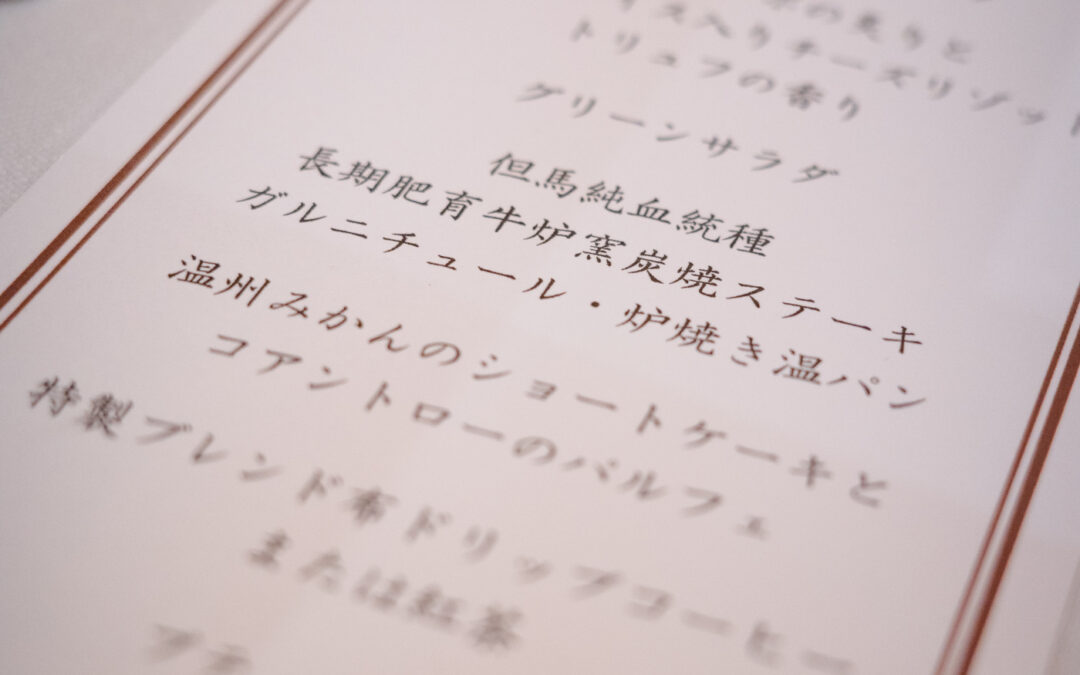 の炙りと
イス入りチーズリゾット
トリュフの香り
グリーンサラダ
但馬純血統種
長期肥育牛炉窯炭焼ステーキ
ガルニチュール・炉焼き温パン
温州みかんのショートケーキと
コアントローのパルフェ
特製ブレンド布ドリップコーヒー
または紅茶
プティ